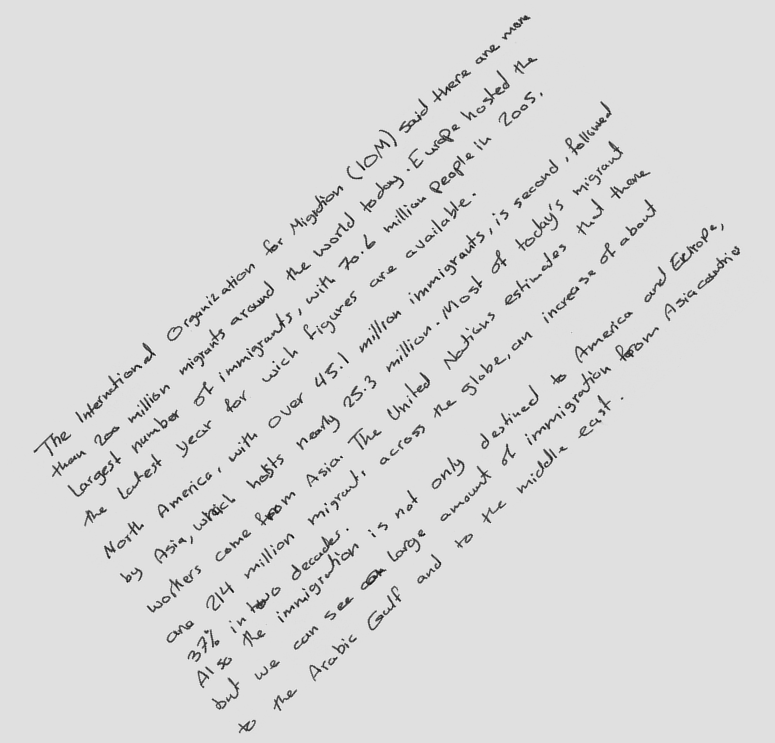 The International Organization for Migration (IOM) said there are more
than 200 million migrants around the world today. Europe hosted the
Largest number of immigrants, with 70.6 million People in 2005,
the latest year for wich figures are available.
North America, with over 45.1 million immigrants, is second, followed
by Asia, which hosts nearly 25.3 million. Most of today's migrant
workers come from Asia. The United Nations estimates that there
are 214 million migrant, across the globe, an increase of about
37% in two decades.
Also the immigration is not only destined to America and Europe,
but we can see large amount of immigration from Asia countries
to the Arabic Gulf and to the middle east.